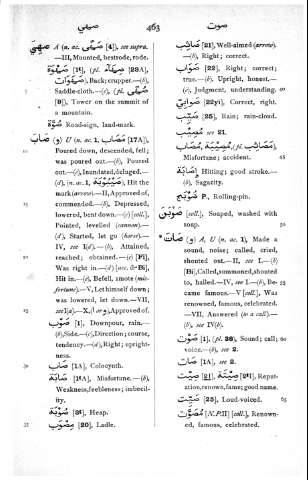 صهي
463
صوت
صَهِيَ A (n. ac. صَهًى [4]), see supra.
—III, Mounted, bestrode, rode.
[1t], (pl. صِهَآء [23A],
), Back; crupper.—(b),
Saddle-cloth.—(c), (pl.
[9]), Tower on the summit of
a mountain.
صُوَّة Road-sign, land-mark.
صَابَ (و) U (n. ac. 1, مَصَاب [17A]),
Poured down, descended, fell;
was poured out.—(b), Poured
out.—(c), Inundated, deluged.—
(d), (n. ac. 1, ), Hit the
mark (arrow).—II, Approved of,
commended.—(b), Depressed,
lowered, bent down.—(c) [coll.],
Pointed, levelled (cannon).—
(d), Started, let go (horse).—
IV, see I(d).—(b), Attained,
reached; obtained.—(c) [Pi],
Was right in.—(d) [acc. ♂-Bi],
Hit in.—(e), Befell, smote (mis-
fortune).—V, Let himself down;
was lowered, let down.—VII,
see I(a).—X, (I or 9), Approved of.
صَوْب [1], Downpour, rain.—
(b), Side.—(c), Direction; course,
tendency.—(d), Right; upright-
ness.
صَاب [1A], Colocynth.
صَابَة [1tA], Misfortune.—(b),
Weakness, feebleness; imbecil-
ity.
صُوبَة [3t], Heap.
مِصْوَب [20], Ladle.
صَائِب [21], Well-aimed (arrow).
—(b), Right; correct.
صَوَاب [22], Right; correct;
true.—(b), Upright, honest.—
(c), Judgment, understanding.
صَوَابِيّ [22yi], Correct, right.
صَيِّب [25], Rain; rain-cloud.
see 21.
مُصِيبَة, مُصَاب, (pl. مَصَائِب),
Misfortune; accident.
إِصَابَة Hitting; good stroke.—
(b), Sagacity.
صَوْبَج P., Rolling-pin.
صَوْبَنَ [coll.], Soaped, washed with
soap.
صَاتَ * (و) A, U (n. ac. 1), Made a
sound, noise; called, cried,
shouted out.—II, see I.—(b)
[Bi], Called, summoned, shouted
to, halled.—IV, see I.—(b), Be-
came famous.—V [coll.], Was
renowned, famous, celebrated.
—VII, Answered (to a call).—
(b), see IV(b).
صَوْت [1], (pl. 36), Sound; call;
voice.—(b), see 2.
صَات [1A], see 2.
صِيت [2I], صِيتَة [2tI], Reput-
ation, renown, fame; good name.
صَيِّت [25], Loud-voiced.
[N.P.II] [coll.], Renown-
ed, famous, celebrated.